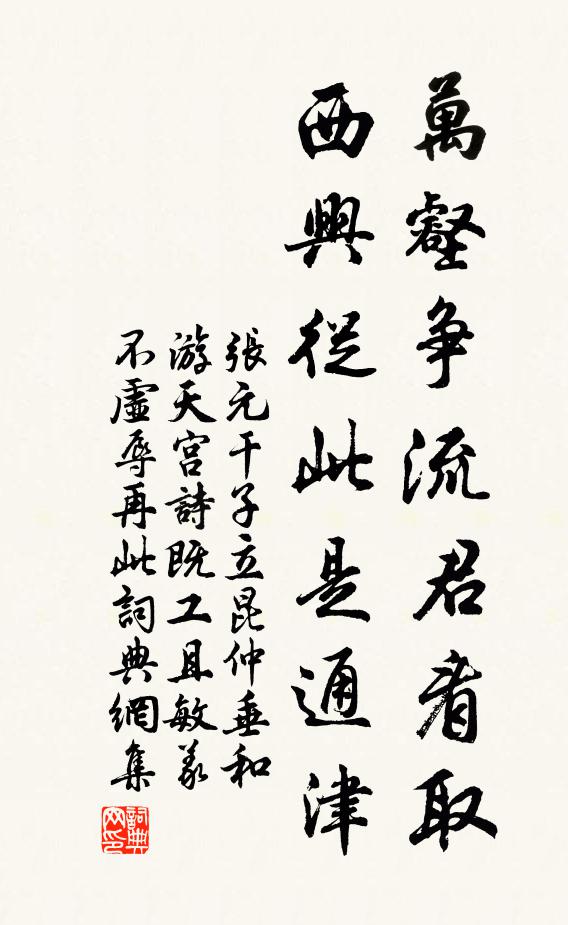 萬壑争流君看取
西興從此是通津
張元干子立昆仲垂和
游天宫詩既工且敏義
不虛辱再此詞典網集
詞典网印